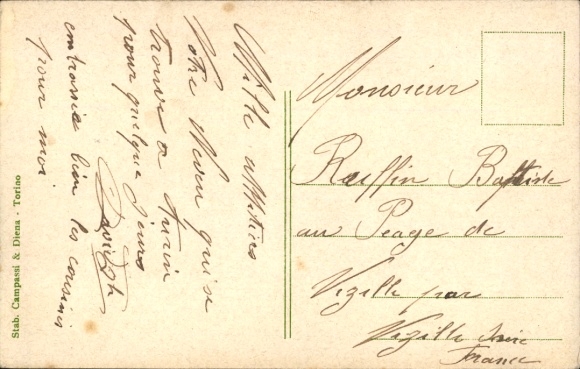 Mille
Votre Neveu qui se
trouve a Turin
pour quelque jours
embrassé bien les cousins
pour moi
Stab. Campassi & Diena - Torino
Monsieur
Ruffin Baptiste
au Péage de
Vizille par
Vizille Isère
France